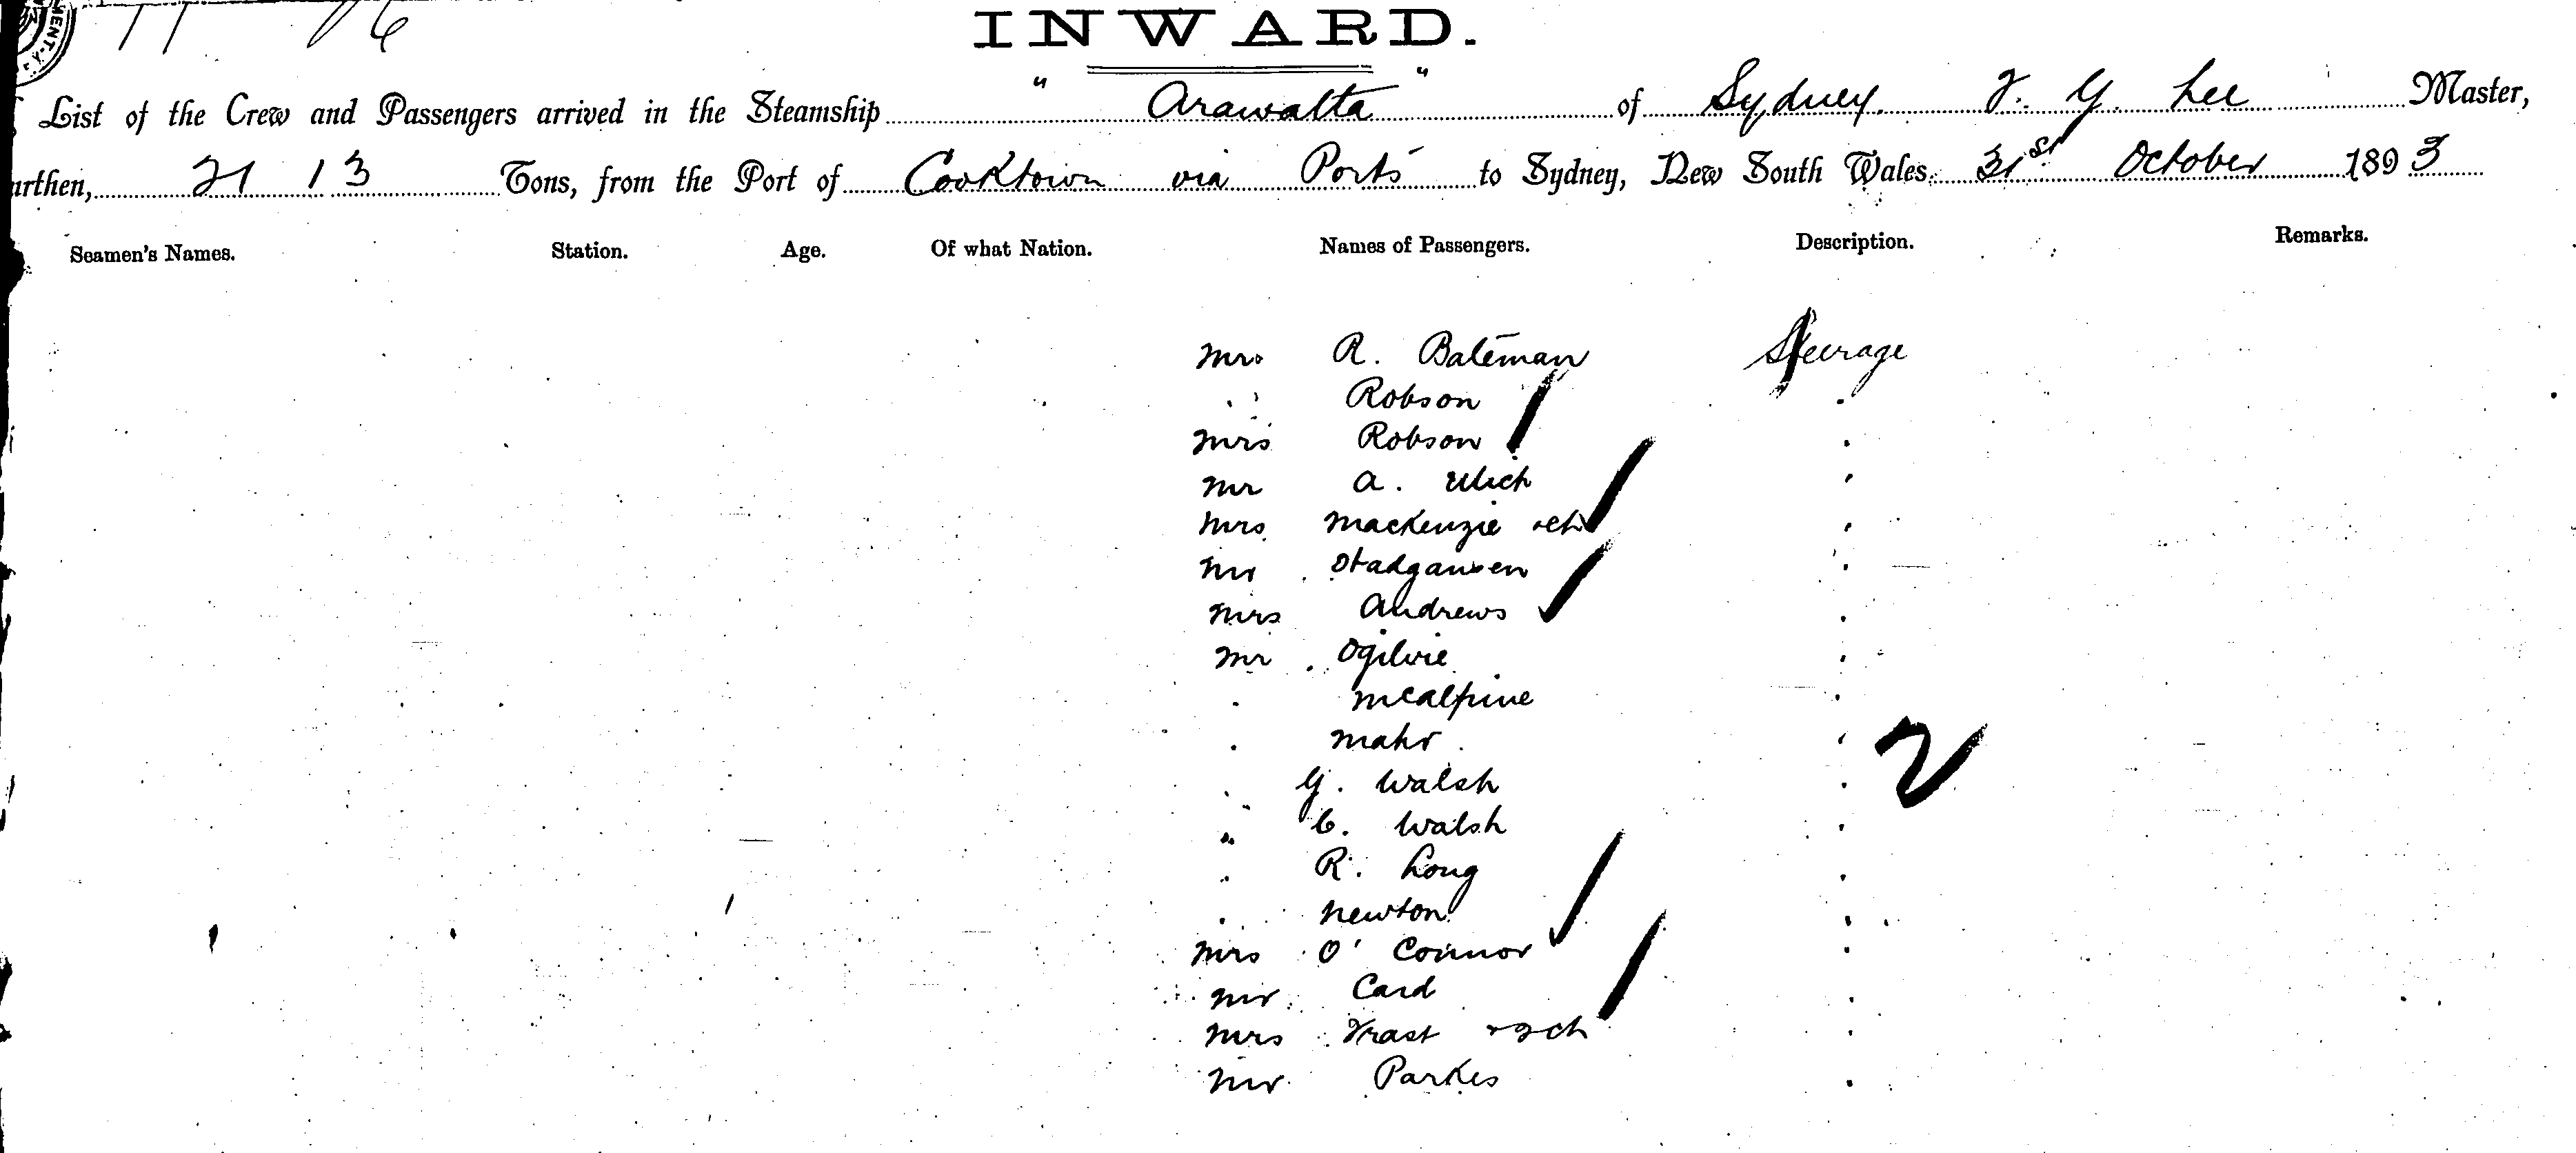 INWARD.
List of the Crew and Passengers arrived in the Steamship " Arawatta " of Sydney. J. G. Lee Master,
urthen, 2113 Tons, from the Port of Cooktown via Ports to Sydney, New South Wales. 31st October 1893
Seamen's Names. Station. Age. Of what Nation. Names of Passengers. Description. Remarks.
Mr R. Bateman Steerage
" Robson
Mrs Robson
Mr A. Ulich
Mrs Mackenzie & ch
Mr
Mrs Andrews
Mr Ogilvie
McAlpine
Mahr
G. Walsh
" C. Walsh
R. Long
Newton
Mrs O'Connor
Mr Card
Mrs Trast & 2 ch
Mr Parkes
2